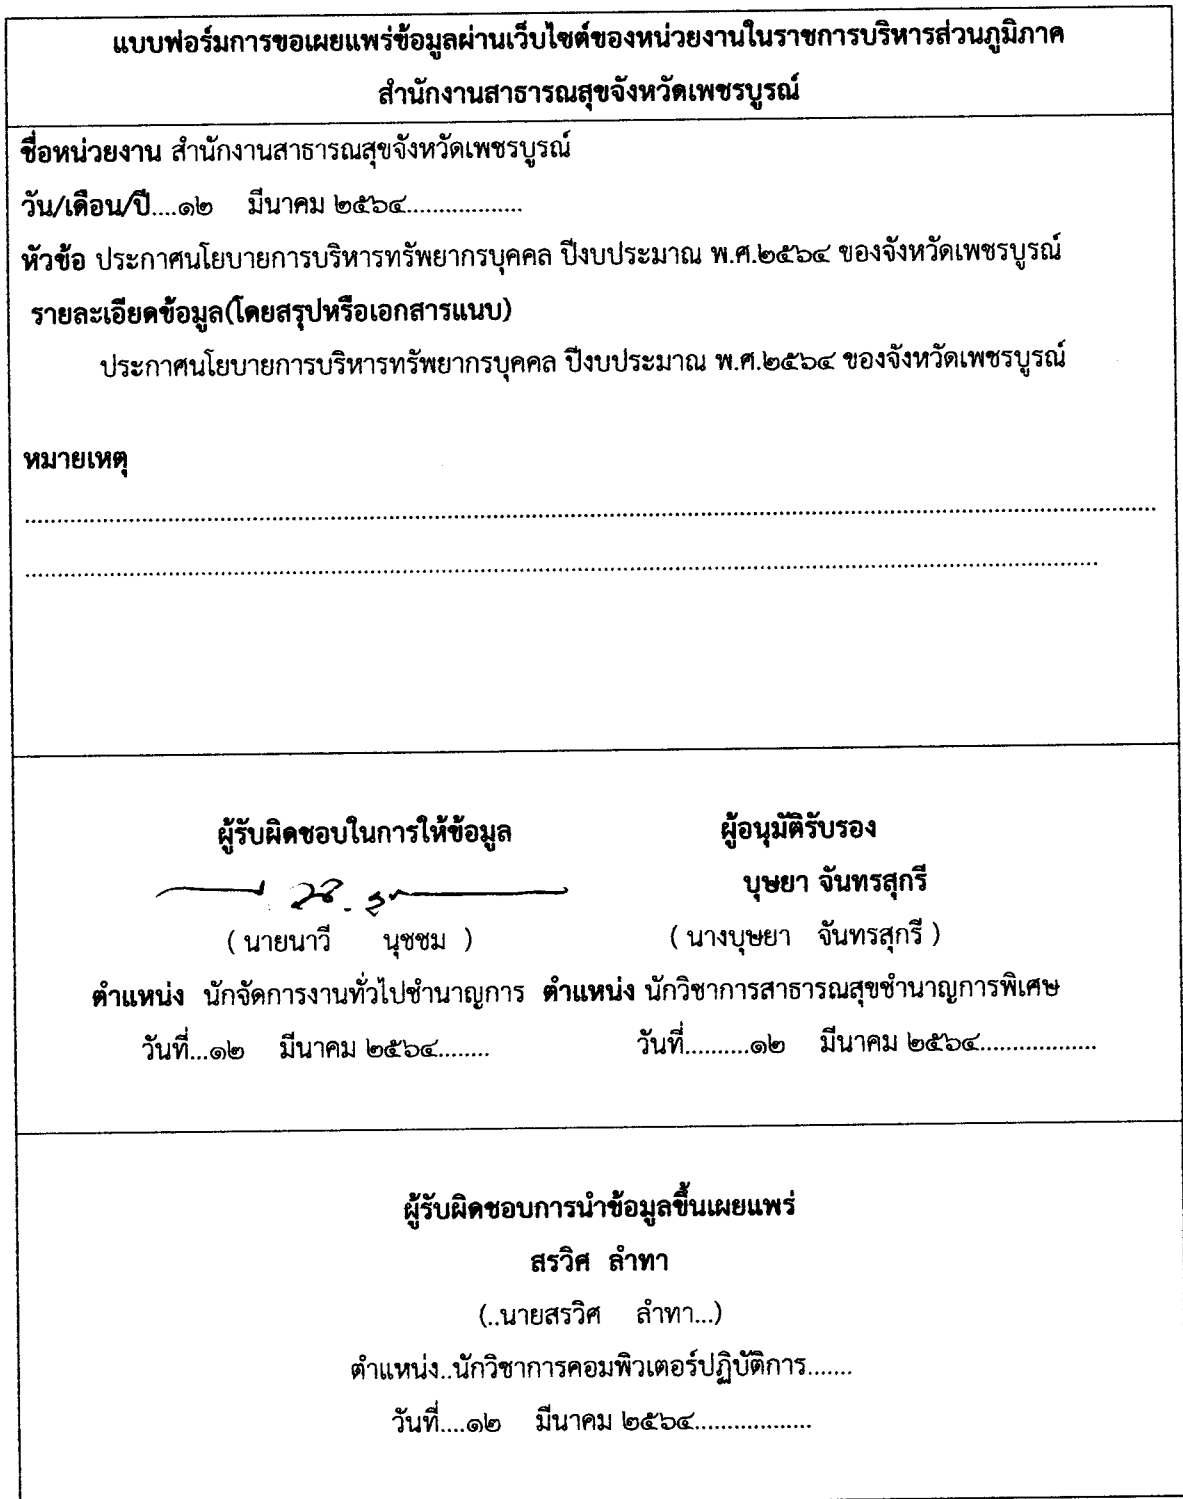 แบบฟอร์มการขอเผยแพร่ข้อมูลผ่านเว็บไซต์ของหน่วยงานในราชการบริหารส่วนภูมิภาค
สำนักงานสาธารณสุขจังหวัดเพชรบูรณ์
ชื่อหน่วยงาน สำนักงานสาธารณสุขจังหวัดเพชรบูรณ์
วัน/เดือน/ปี....๑๒ มีนาคม ๒๕๖๔..................
หัวข้อ ประกาศนโยบายการบริหารทรัพยากรบุคคล ปีงบประมาณ พ.ศ.๒๕๖๔ ของจังหวัดเพชรบูรณ์
รายละเอียดข้อมูล(โดยสรุปหรือเอกสารแนบ)
ประกาศนโยบายการบริหารทรัพยากรบุคคล ปีงบประมาณ พ.ศ.๒๕๖๔ ของจังหวัดเพชรบูรณ์
หมายเหตุ
ผู้รับผิดชอบในการให้ข้อมูล ผู้อนุมัติรับรอง
บุษยา จันทรสุกรี
( นายนาวี นุชชม ) ( นางบุษยา จันทรสุกรี )
ตำแหน่ง นักจัดการงานทั่วไปชำนาญการ ตำแหน่ง นักวิชาการสาธารณสุขชำนาญการพิเศษ
วันที่...๑๒ มีนาคม ๒๕๖๔........ วันที่..........๑๒ มีนาคม ๒๕๖๔..................
ผู้รับผิดชอบการนำข้อมูลขึ้นเผยแพร่
สรวิศ ลำทา
(..นายสรวิศ ลำทา...)
ตำแหน่ง..นักวิชาการคอมพิวเตอร์ปฏิบัติการ.......
วันที่....๑๒ มีนาคม ๒๕๖๔..................